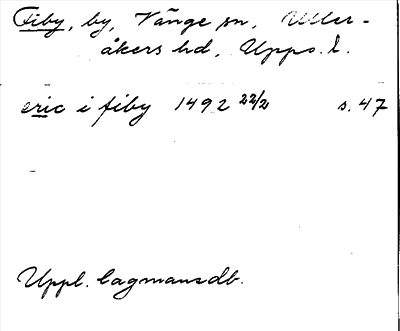 Fiby, by, Vänge sn, Uller-
åkers hd, Upps. l.
eric i fiby 1492 22/2 s. 47
Uppl. lagmansdb.